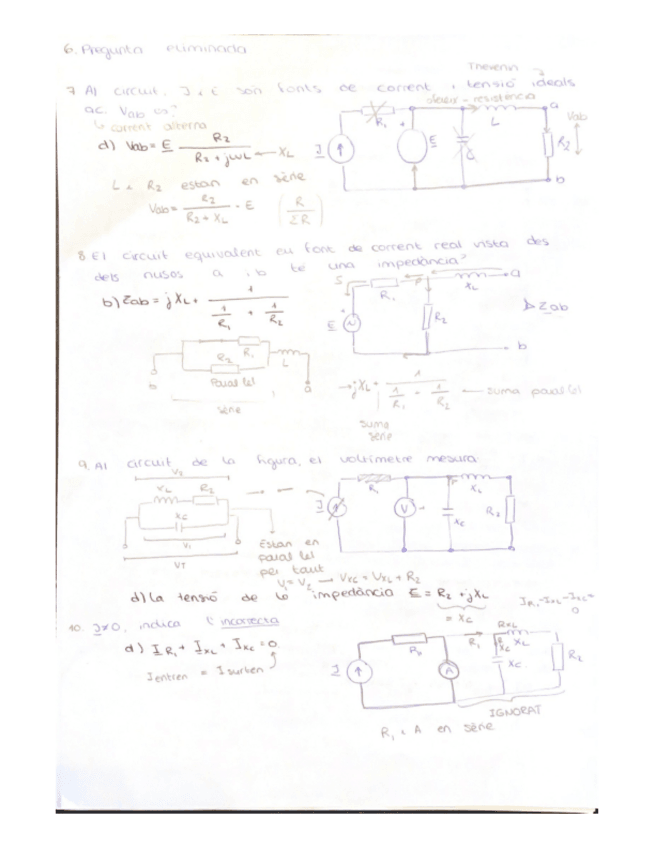 6. Pregunta eliminada
Thevenin
7 Al circuit, J i E són fonts de corrent i tensió ideals
ac. Vab és?
↳ corrent alterna
d) Vab = E R2 / (R2 + jωL) ← XL
L i R2 estan en sèrie
Vab = R2 / (R2 + XL) · E (R / ΣR)
R1 E L R2 a b Vab J
8 El circuit equivalent en font de corrent real vista des
dels nusos a i b té una impedància?
b) Zab = jXL + 1 / (1/R1 + 1/R2)
E R1 R2 XL a b Zab
R1 R2 L b a
Paral·lel
Sèrie
→ jXL + 1 / (1/R1 + 1/R2) ← suma paral·lel
suma
sèrie
9. Al circuit de la figura, el voltímetre mesura:
V2
VL R2
XC
V1
VT
J R1 V XL XC R2
Estan en
paral·lel
per tant
V1 = V2 → VXC = VXL + R2
d) La tensió de la impedància E = R2 + jXL
= XC
IR1 - IXL - IXC =
0
10. J≠0, indica l'incorrecta
d) IR1 + IXL + IXC = 0
Ientren = Isurten
J A R1 XL XC R2
IGNORAT
R1 i A en sèrie